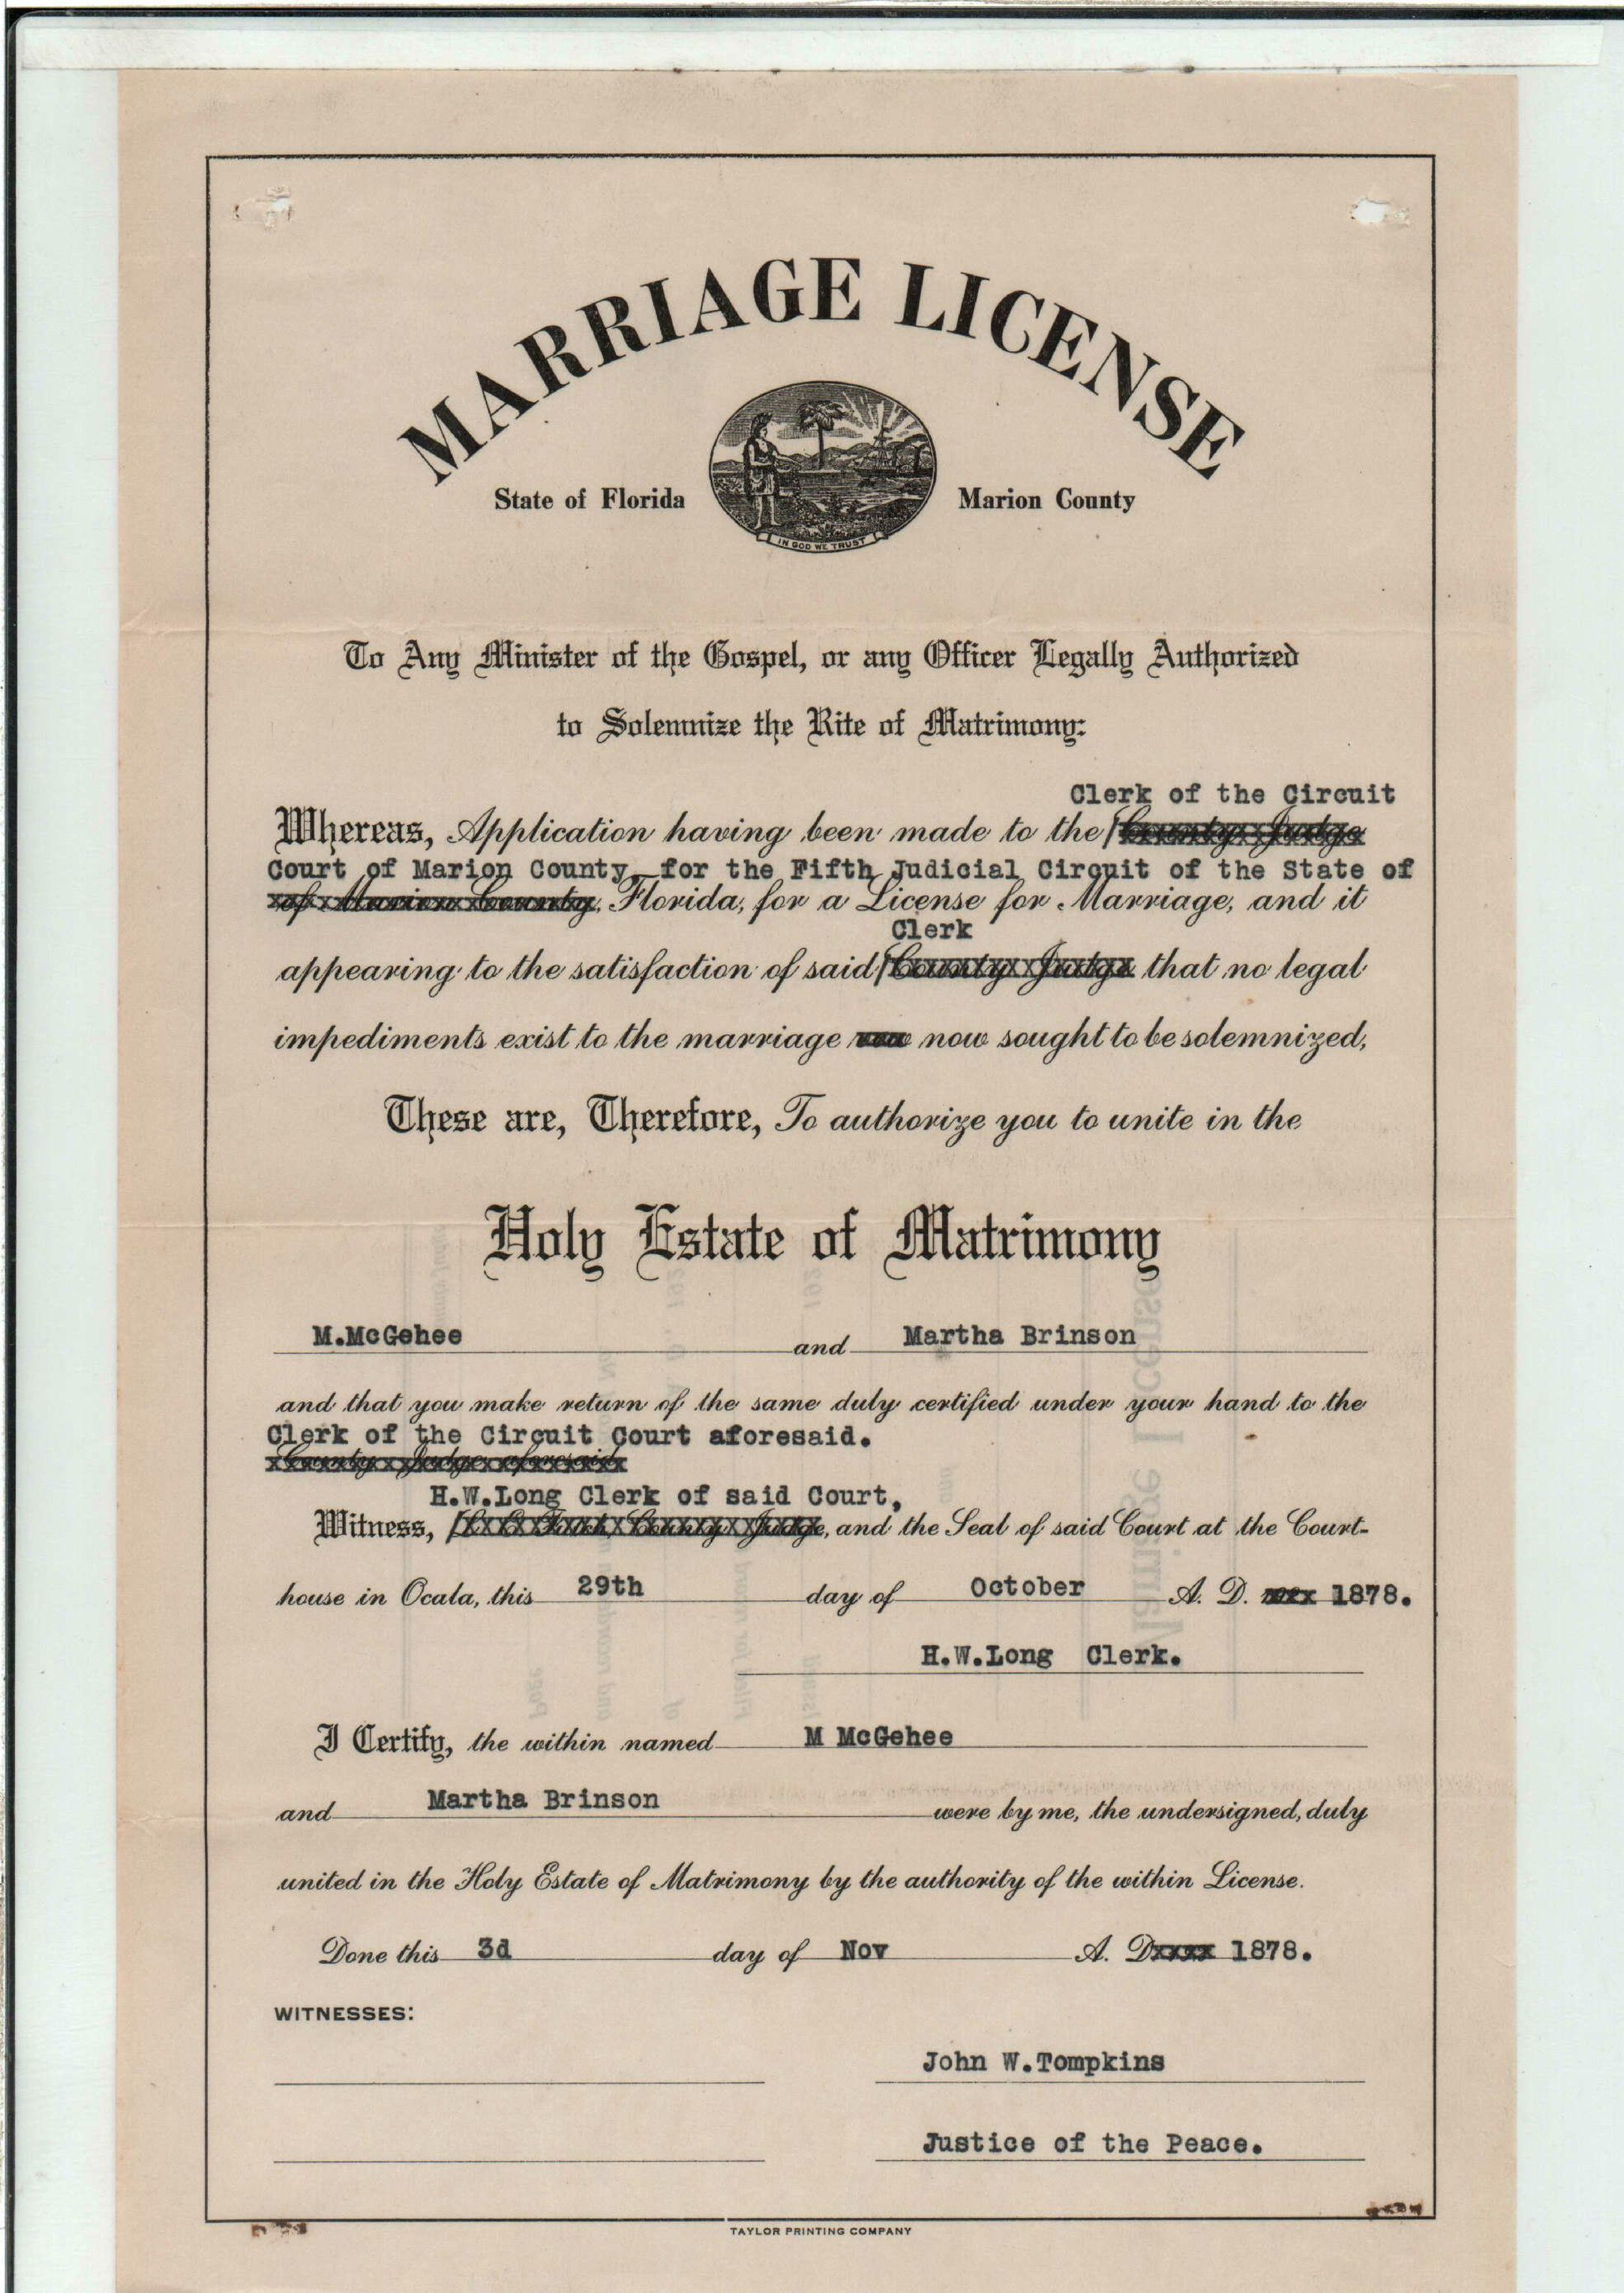 MARRIAGE LICENSE
State of Florida
Marion County
IN GOD WE TRUST
To Any Minister of the Gospel, or any Officer Legally Authorized
to Solemnize the Rite of Matrimony:
Clerk of the Circuit
Whereas, Application having been made to the / County Judge
Court of Marion County, for the Fifth Judicial Circuit of the State of
of Marion County, Florida, for a License for Marriage, and it
Clerk
appearing to the satisfaction of said / County Judge that no legal
impediments exist to the marriage now sought to be solemnized,
These are, Therefore, To authorize you to unite in the
Holy Estate of Matrimony
M.McGehee and Martha Brinson
and that you make return of the same duly certified under your hand to the
Clerk of the Circuit Court aforesaid.
County Judge aforesaid
H.W.Long Clerk of said Court,
Witness, / County Judge, and the Seal of said Court at the Court-
house in Ocala, this 29th day of October A. D. 1878.
H.W.Long Clerk.
I Certify, the within named M McGehee
and Martha Brinson were by me, the undersigned, duly
united in the Holy Estate of Matrimony by the authority of the within License.
Done this 3d day of Nov A. D 1878.
WITNESSES:
John W.Tompkins
Justice of the Peace.
TAYLOR PRINTING COMPANY